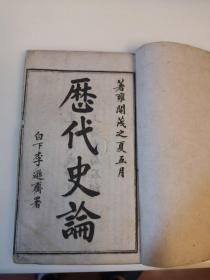 著雍閹茂之夏五月
歷代史論
白下李遜齋署